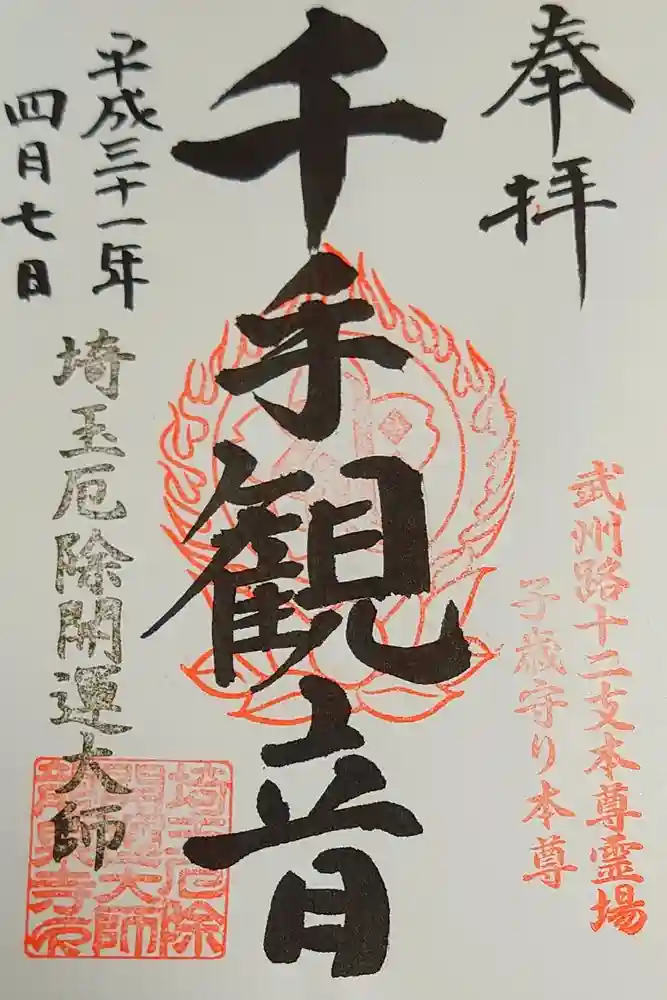 奉拝
武州路十二支本尊霊場
子歳守り本尊
千手観音
平成三十一年
四月七日
埼玉厄除開運大師
埼玉厄除
開運大師
龍泉寺印